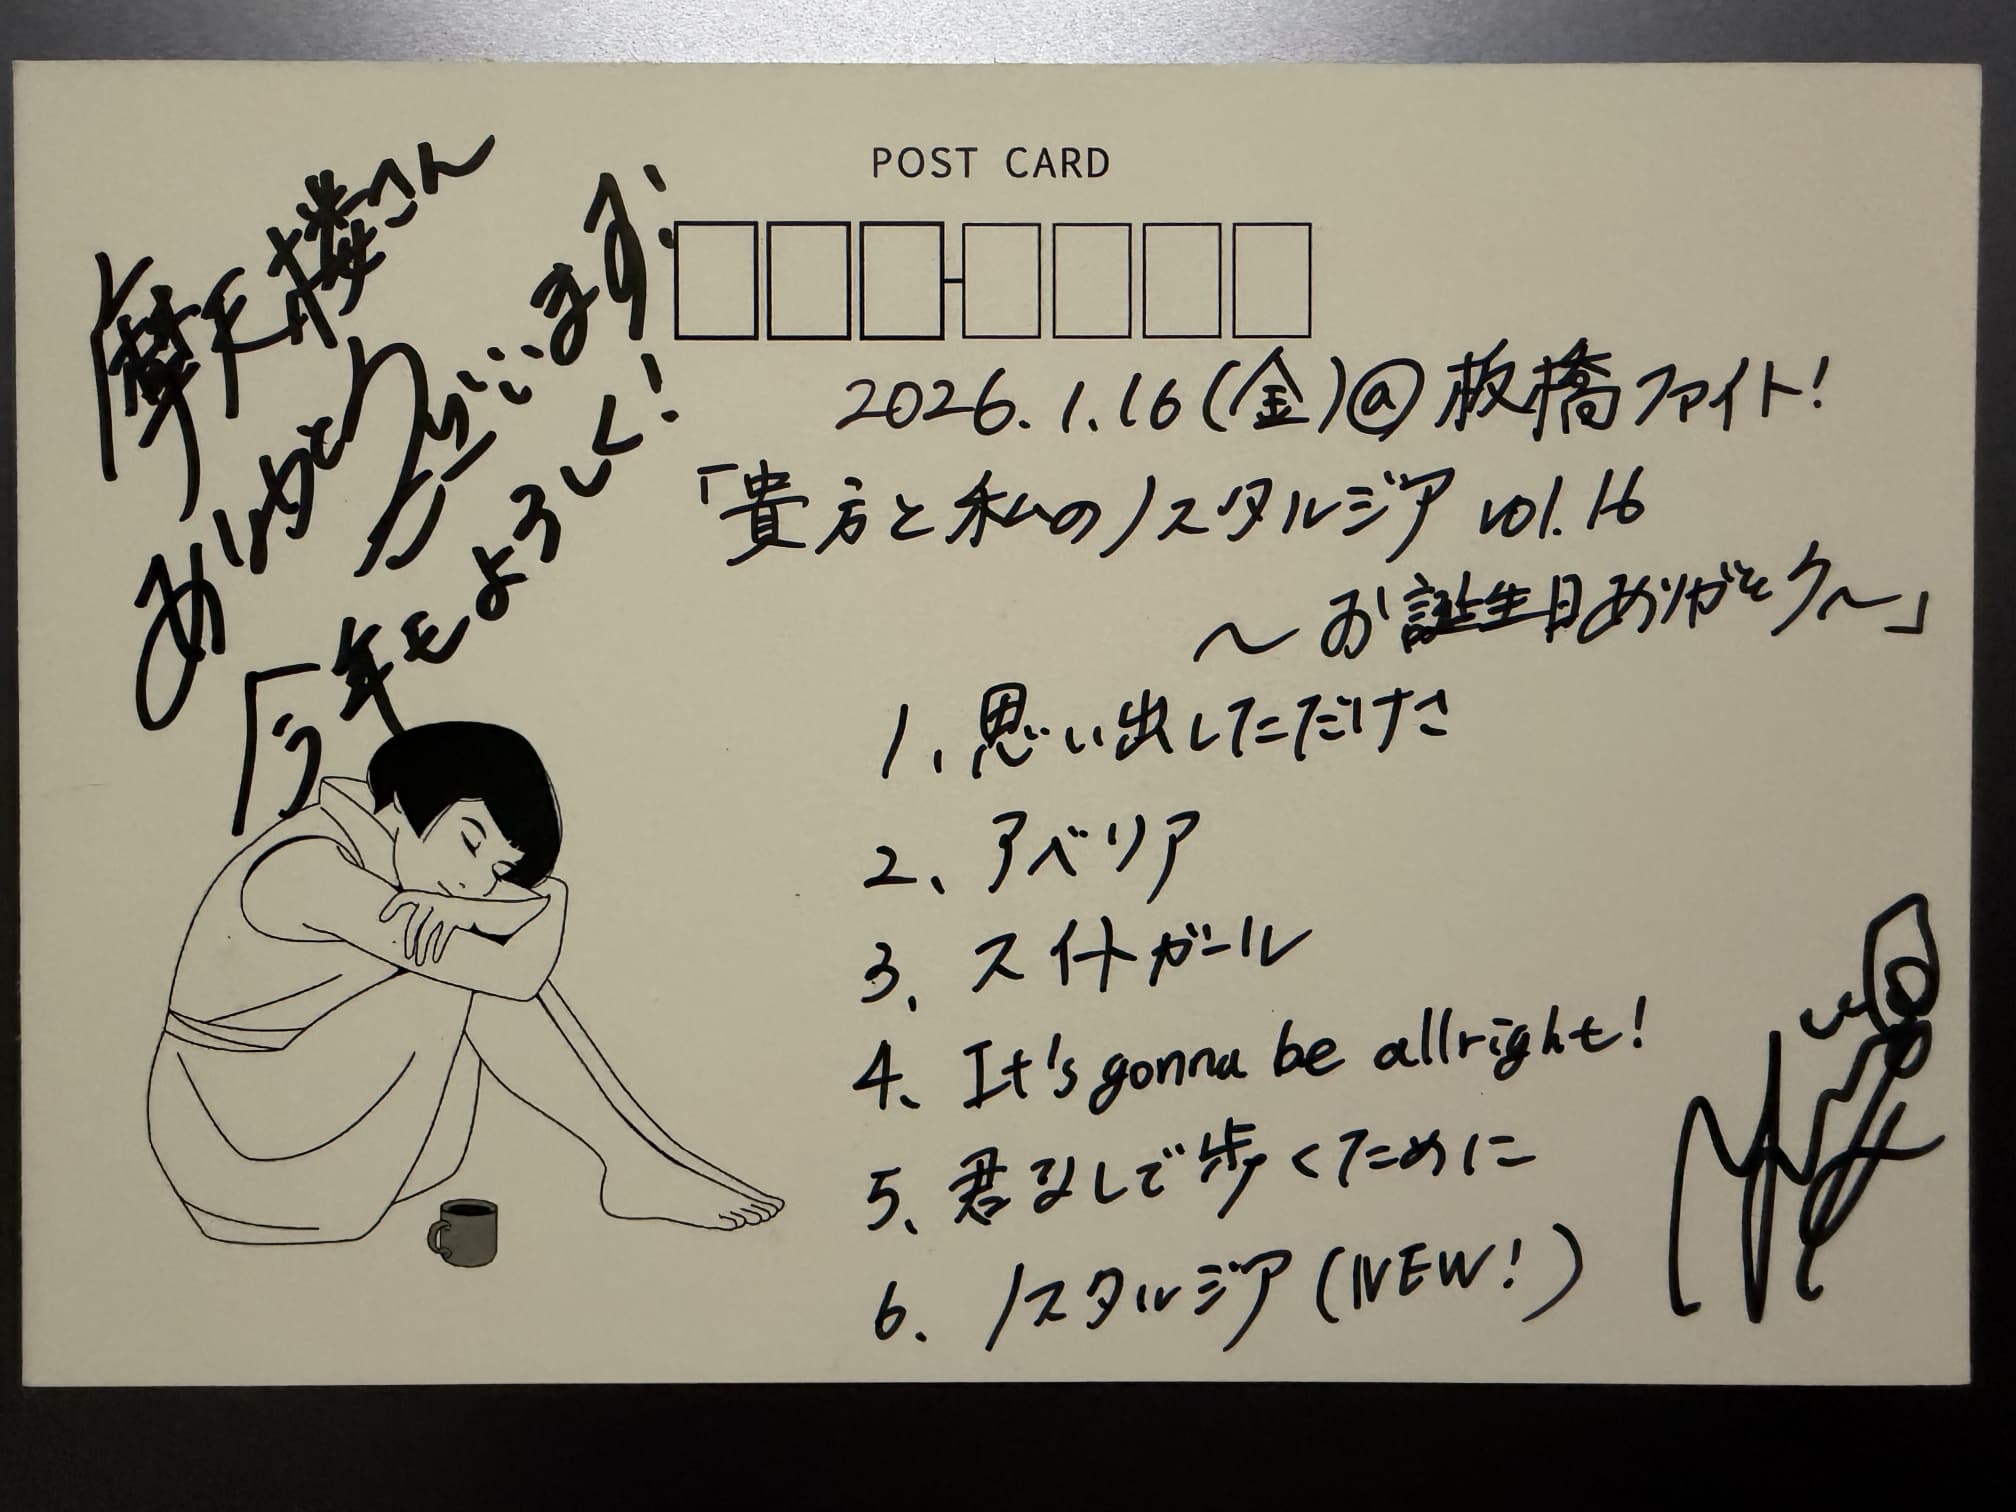 POST CARD
摩天楼さん
ありがとうございます!
今年もよろしく!
2026.1.16(金)@板橋ファイト!
「貴方と私のノスタルジア vol.16
〜お誕生日ありがとう〜」
1、思い出しただけさ
2、アベリア
3、スイートガール
4、It's gonna be allright!
5、君なしで歩くために
6、ノスタルジア(NEW!)